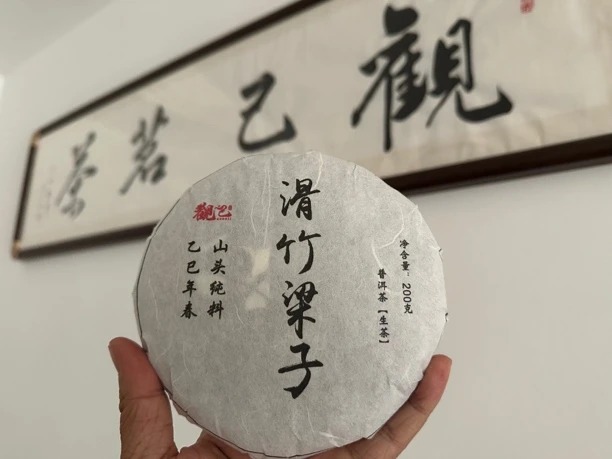 觀己茗茶
觀己
滑竹梁子
山头纯料
乙巳年春
净含量：200克
普洱茶【生茶】